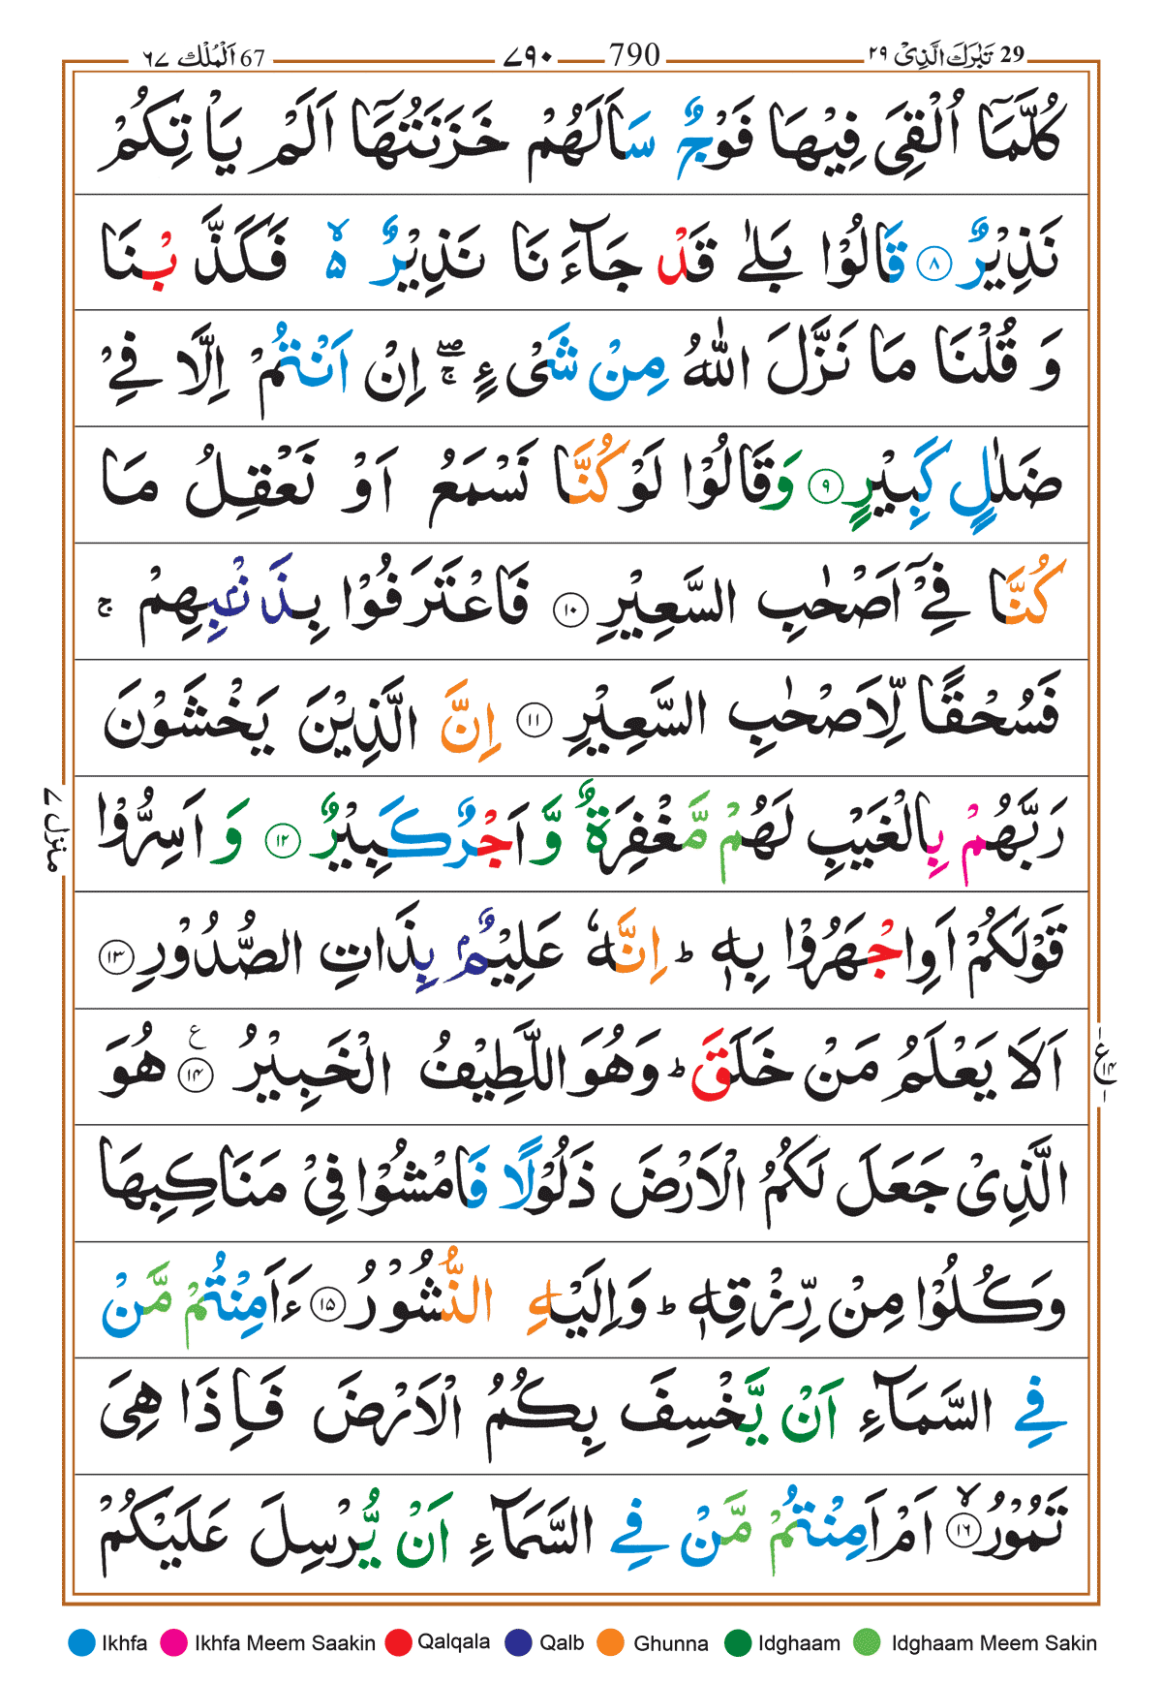 29 تَبٰرَكَ الَّذِیْ ۲۹ 790 ۷۹۰ 67 اَلْمُلْك ۶۷
كُلَّمَاۤ اُلْقِیَ فِیْهَا فَوْجٌ سَاَلَهُمْ خَزَنَتُهَاۤ اَلَمْ یَاْتِكُمْ
نَذِیْرٌ ۸ قَالُوْا بَلٰی قَدْ جَآءَنَا نَذِیْرٌ ۙ۬ فَكَذَّبْنَا
وَ قُلْنَا مَا نَزَّلَ اللّٰهُ مِنْ شَیْءٍ ۖۚ اِنْ اَنْتُمْ اِلَّا فِیْ
ضَلٰلٍ كَبِیْرٍ ۹ وَقَالُوْا لَوْ كُنَّا نَسْمَعُ اَوْ نَعْقِلُ مَا
كُنَّا فِیْۤ اَصْحٰبِ السَّعِیْرِ ۱۰ فَاعْتَرَفُوْا بِذَنْۢبِهِمْ ۚ
فَسُحْقًا لِّاَصْحٰبِ السَّعِیْرِ ۱۱ اِنَّ الَّذِیْنَ یَخْشَوْنَ
رَبَّهُمْ بِالْغَیْبِ لَهُمْ مَّغْفِرَةٌ وَّ اَجْرٌ كَبِیْرٌ ۱۲ وَ اَسِرُّوْا
قَوْلَكُمْ اَوِاجْهَرُوْا بِهٖ ؕ اِنَّهٗ عَلِیْمٌۢ بِذَاتِ الصُّدُوْرِ ۱۳
اَلَا یَعْلَمُ مَنْ خَلَقَ ؕ وَهُوَ اللَّطِیْفُ الْخَبِیْرُ ۱۴ ع هُوَ
الَّذِیْ جَعَلَ لَكُمُ الْاَرْضَ ذَلُوْلًا فَامْشُوْا فِیْ مَنَاكِبِهَا
وَكُلُوْا مِنْ رِّزْقِهٖ ؕ وَاِلَیْهِ النُّشُوْرُ ۱۵ ءَاَمِنْتُمْ مَّنْ
فِی السَّمَآءِ اَنْ یَّخْسِفَ بِكُمُ الْاَرْضَ فَاِذَا هِیَ
تَمُوْرُ ۙ۱۶ اَمْ اَمِنْتُمْ مَّنْ فِی السَّمَآءِ اَنْ یُّرْسِلَ عَلَیْكُمْ
منزل ۷
ع ۱۴
Ikhfa Ikhfa Meem Saakin Qalqala Qalb Ghunna Idghaam Idghaam Meem Sakin